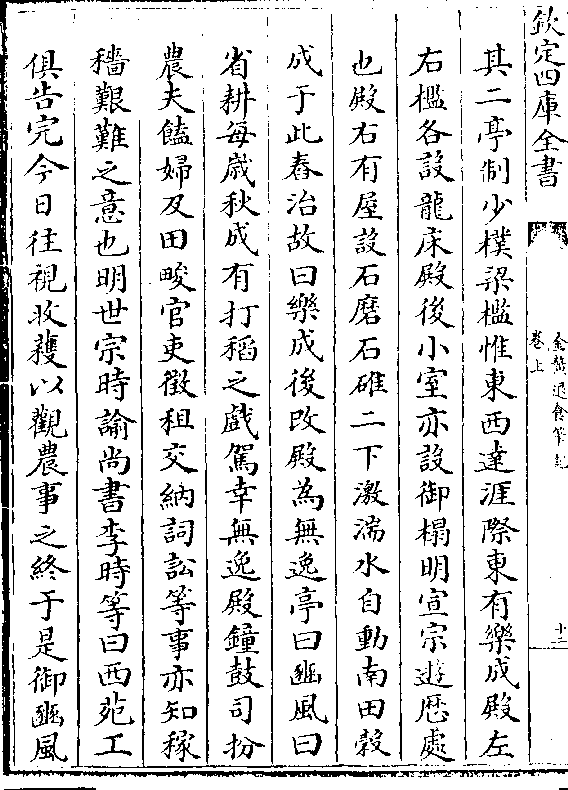 欽定四庫全書
金鰲退食筆記
卷上
十二
其二亭制少樸梁檻惟東西達涯際東有樂成殿左
右檻各設龍床殿後小室亦設御榻明宣宗遊歴處
也殿右有屋設石磨石碓二下激湍水自動南田榖
成于此舂治故曰樂成後改殿為無逸亭曰豳風曰
省耕每歳秋成有打稻之戲駕幸無逸殿鐘鼓司扮
農夫饁婦及田畯官吏徵租交納詞訟等事亦知稼
穡艱難之意也明世宗時諭尚書李時等曰西苑工
俱告完今日往視收穫以觀農事之終于是御豳風